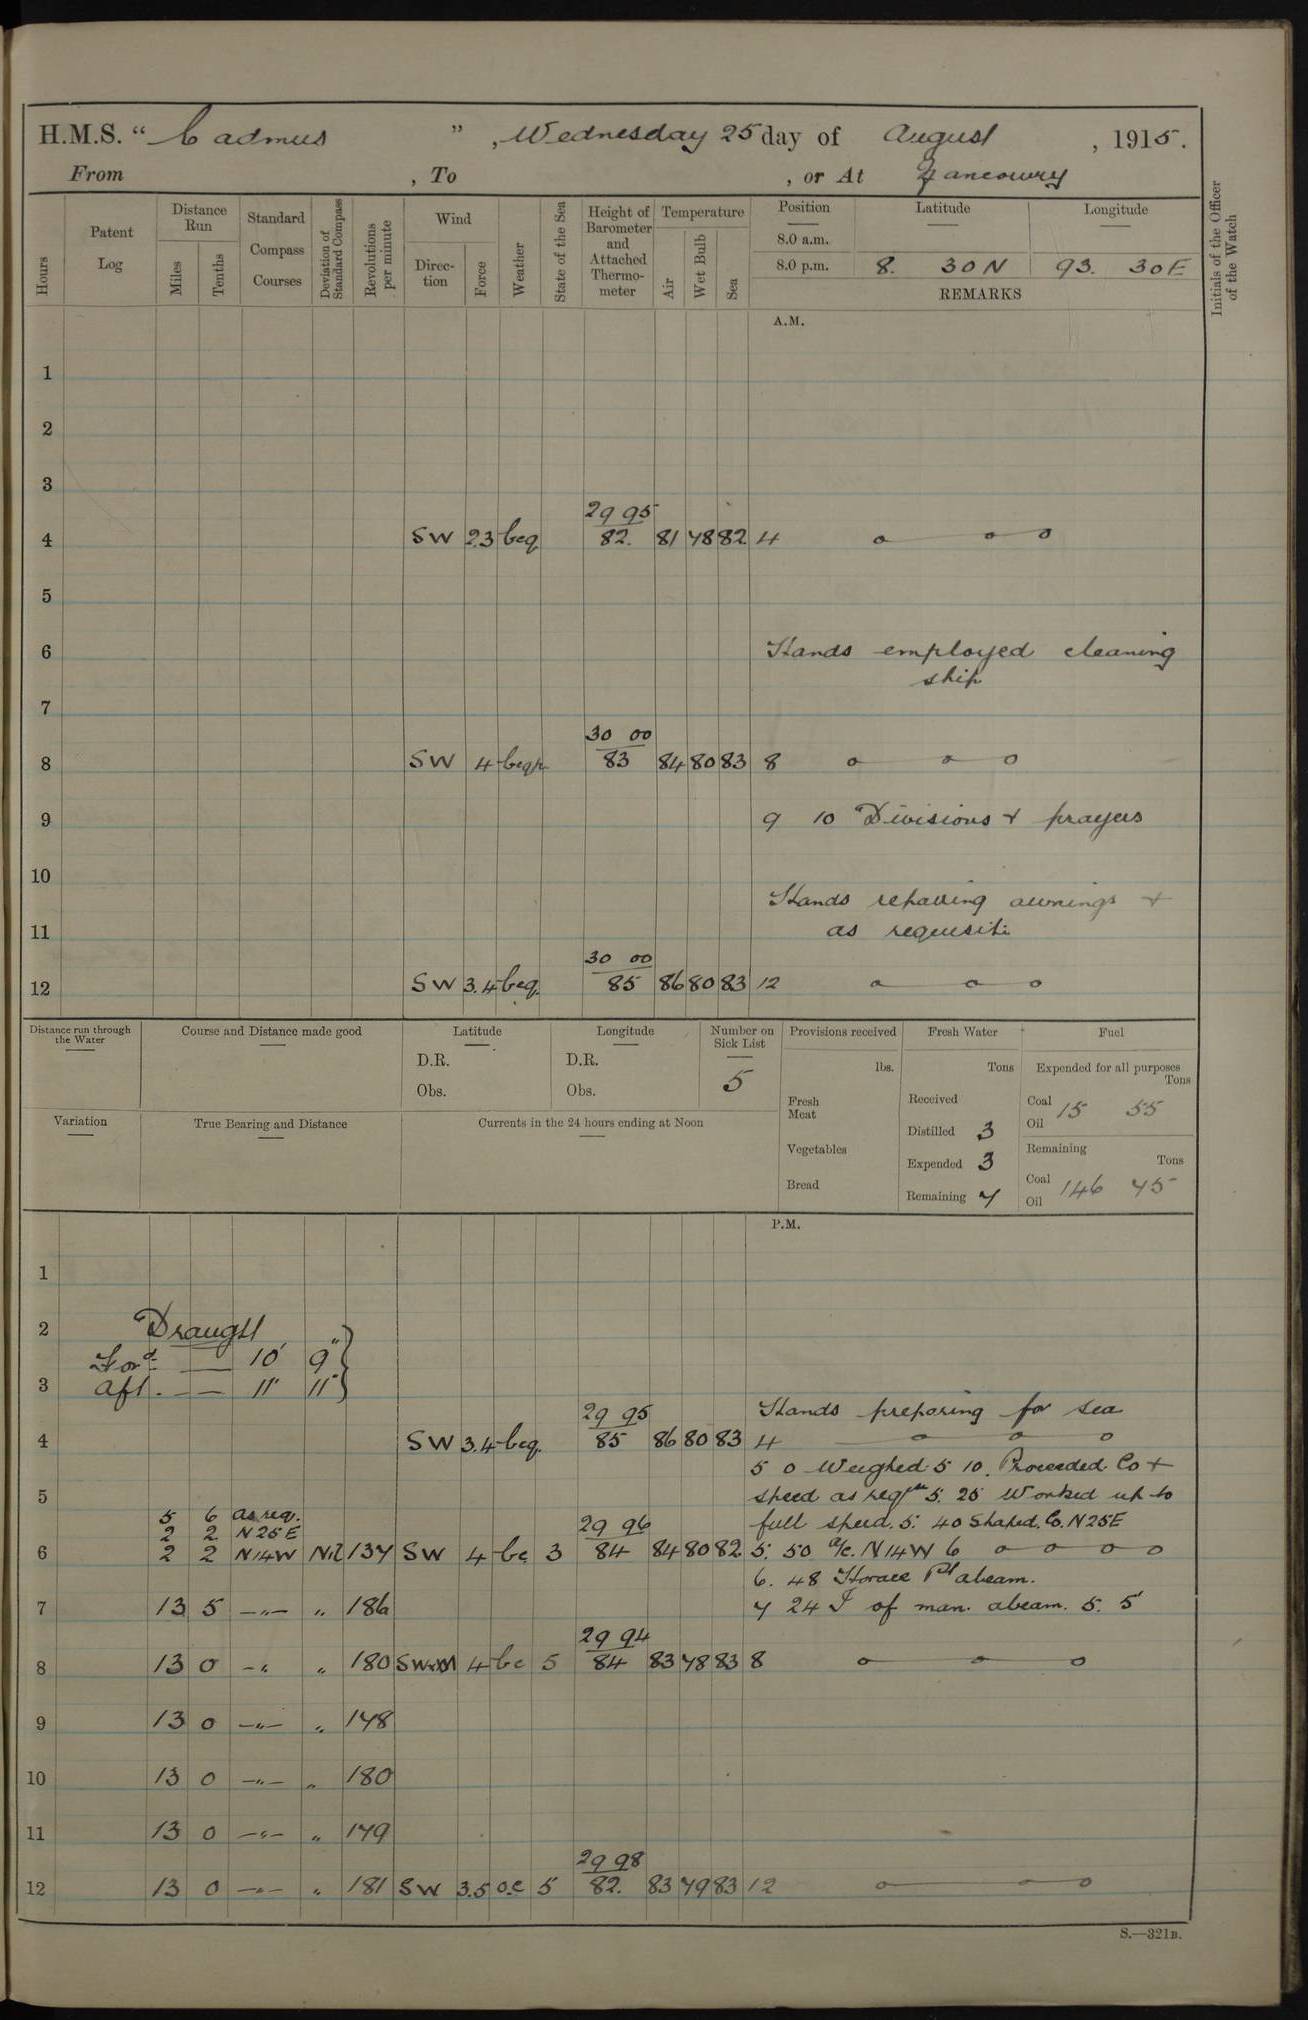 H.M.S. “ Cadmus ” , Wednesday 25 day of August , 1915.
From , To , or At Nancowry
Hours
Patent Log
Distance Run
Miles
Tenths
Standard Compass Courses
Deviation of Standard Compass
Revolutions per minute
Wind
Direction
Force
Weather
State of the Sea
Height of Barometer and Attached Thermometer
Temperature
Air
Wet Bulb
Sea
Position Latitude Longitude
8.0 a.m.
8.0 p.m. 8. 30 N 93. 30 E
REMARKS
Initials of the Officer of the Watch
A.M.
1
2
3
29 95
4 SW 2.3 bcq 82. 81 78 82 4
5
6 Hands employed cleaning
ship
7
30 00
8 SW 4 bcqp 83 84 80 83 8
9 9 10 Divisions + prayers
10
Hands repairing awnings +
11 as requisite
30 00
12 SW 3.4 bcq. 85 86 80 83 12
Distance run through the Water
Course and Distance made good
Latitude
D.R.
Obs.
Longitude
D.R.
Obs.
Number on Sick List
5
Provisions received
lbs.
Fresh Meat
Vegetables
Bread
Fresh Water
Tons
Received
Distilled 3
Expended 3
Remaining 7
Fuel
Expended for all purposes
Tons
Coal 15 55
Oil
Remaining
Tons
Coal 146 75
Oil
Variation
True Bearing and Distance
Currents in the 24 hours ending at Noon
P.M.
1
2 Draught
For'd — 10' 9"
3 Aft. — — 11' 11"
Hands preparing for sea
29 95
4 SW 3.4 bcq. 85 86 80 83 4
5 0 Weighed 5 10. Proceeded Co +
5 speed as reqte 5. 25 Worked up to
5 6 as req. full speed. 5. 40 Shaped. Co. N25E
2 2 N25E 29 96
6 2 2 N14W Nil 137 SW 4 bc 3 84 84 80 82 5. 50 a/c. N14W 6
6. 48 Horace Pt abeam.
7 13 5 —"— " 186 7 24 I of man. abeam. 5. 5'
29 94
8 13 0 —" " 180 4 bc 5 84 83 78 83 8
9 13 0 —"— " 178
10 13 0 —"— " 180
11 13 0 —"— " 179
29 98
12 13 0 —"— " 181 SW 3.5 o.c 5 82. 83 79 83 12
S.—321B.